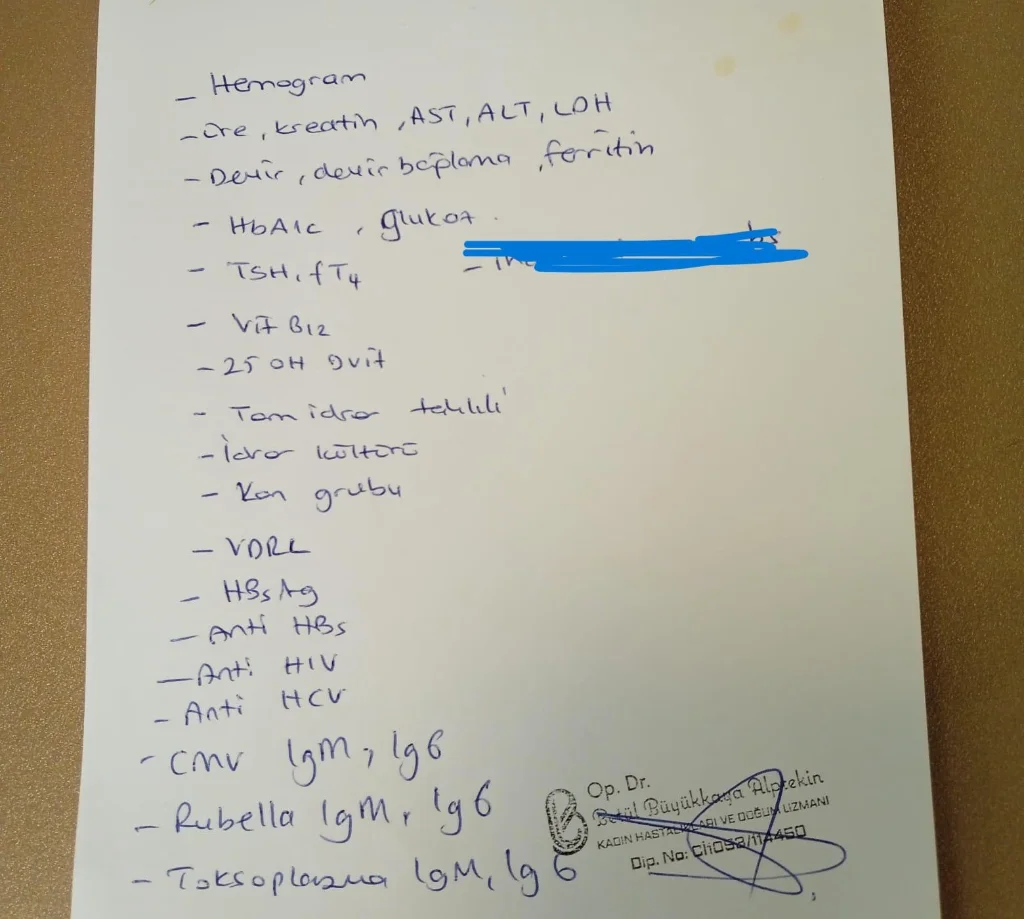 - Hemogram
- Üre, kreatin, AST, ALT, LDH
- Demir, demir bağlama, ferritin
- HbA1c, glukoz.
- TSH, fT4
- Vit B12
- 25 OH Dvit
- Tam idrar tahlili
- İdrar kültürü
- Kan grubu
- VDRL
- HBsAg
- Anti HBs
- Anti HIV
- Anti HCV
- CMV IgM, IgG
- Rubella IgM, IgG
- Toksoplazma IgM, IgG
Op. Dr.
Betül Büyükkaya Alptekin
KADIN HASTALIKLARI VE DOĞUM UZMANI
Dip. No: